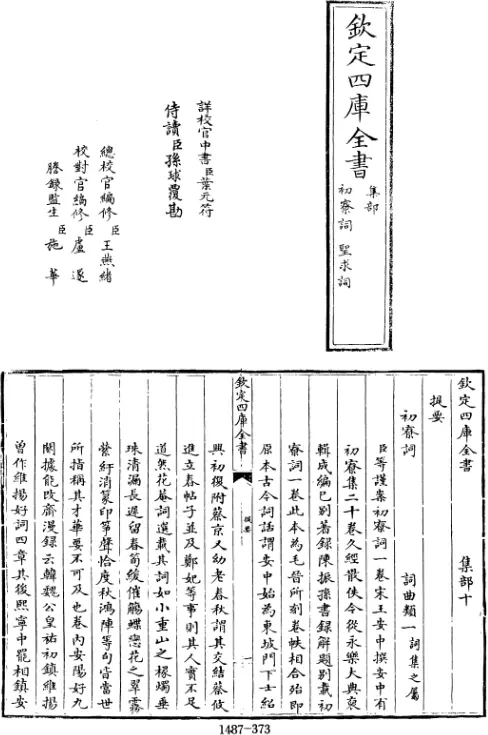 欽定四庫全書
集部
初寮詞 聖求詞
詳校官中書臣葉元符
侍讀臣孫球覆勘
總校官編修臣王燕緒
校對官編修臣盧遂
謄錄監生臣施華
欽定四庫全書 集部十
提要
初寮詞 詞曲類一詞集之屬
臣等謹案初寮詞一卷宋王安中撰安中有
初寮集二十卷久經散佚今從永樂大典裒
輯成編已別著錄陳振孫書錄解題別載初
寮詞一卷此本為毛晉所刻卷帙相合殆即
原本古今詞話謂安中始為東坡門下士紹
欽定四庫全書
提要
一
興初復附蔡京又幼老春秋謂其交結蔡攸
進立春帖子並及鄭妃等事則其人實不足
道然花菴詞選載其詞如小重山之椽燭垂
珠清漏長遲留春筍緩催觴蝶戀花之翠霧
縈紆消篆印箏聲恰度秋鴻陣等句皆當世
所指稱其才華要不可及也卷內安陽好九
闋據能改齋漫錄云韓魏公皇祐初鎮維揚
曾作維揚好詞四章其後熙寧中罷相鎮安
1487-373